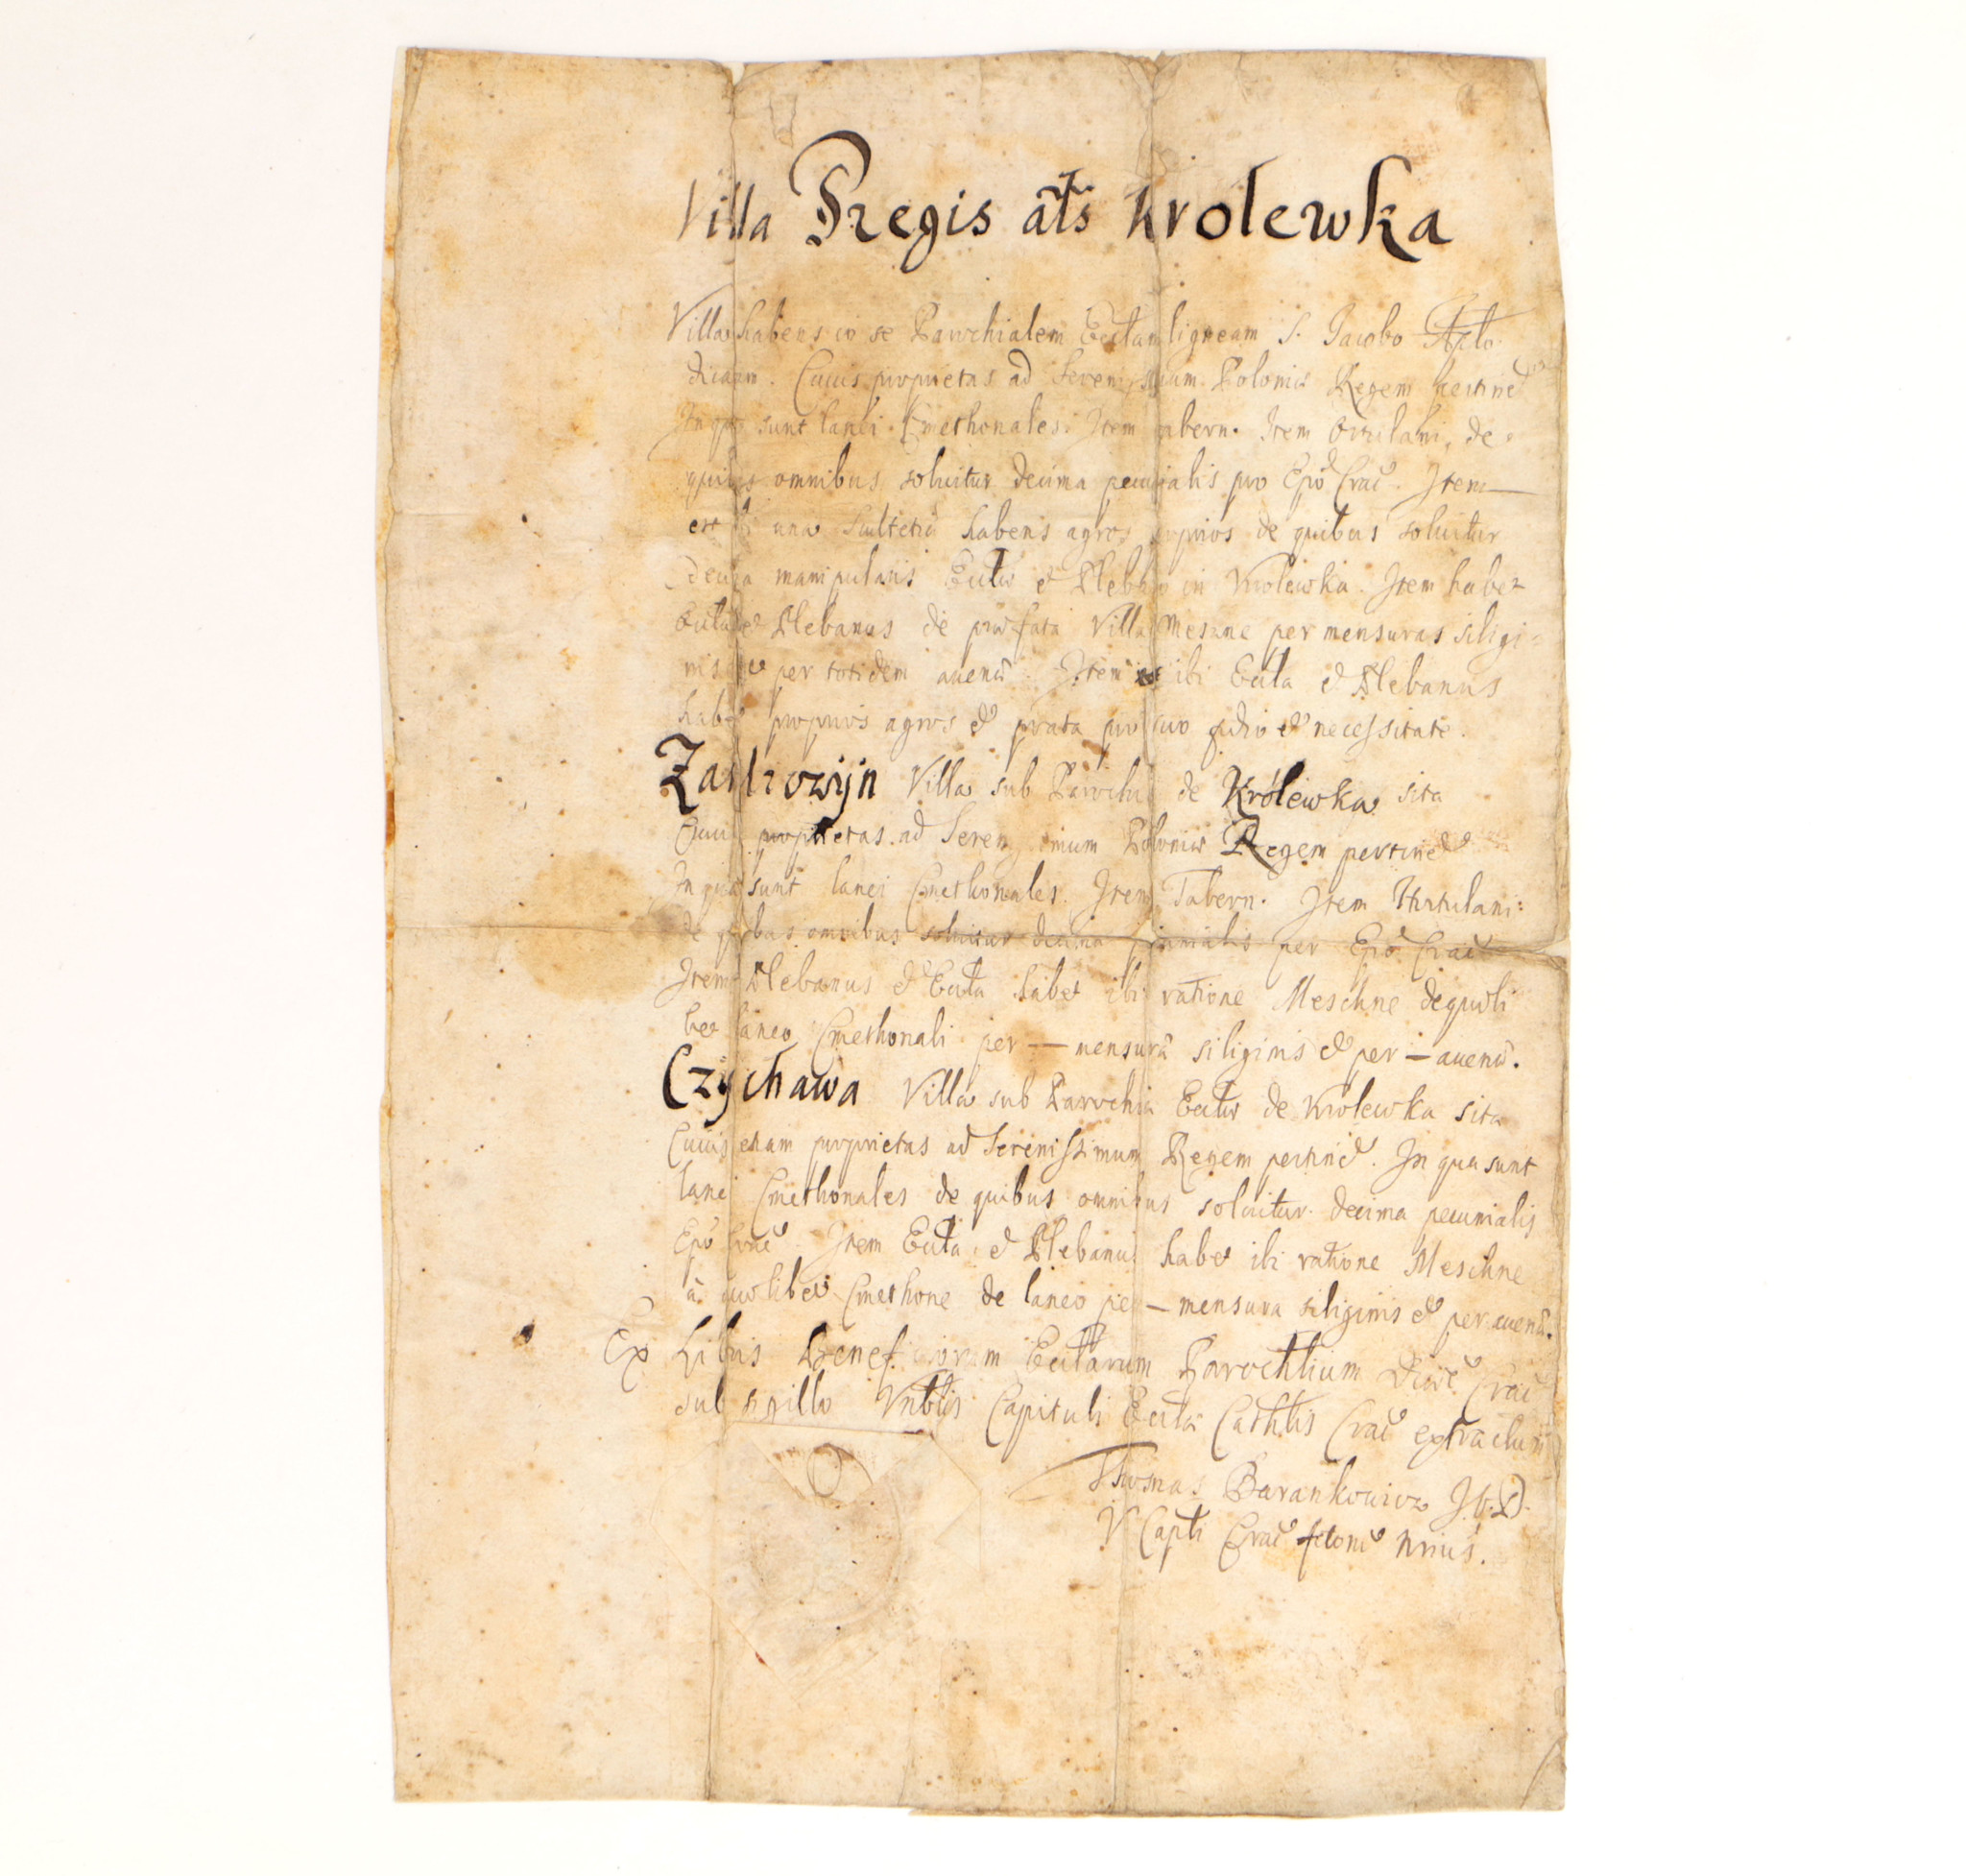 Villa Regis als Krolewka
Villa habens in se Parochialem Eccłam ligneam S. Jacobo Apło
dicatam. Cuius proprietas ad Serenissimum Poloniæ Regem pertinet
In qua sunt lanei Cmethonales. Item tabern. Item Ortulani, de
quibus omnibus soluitur decima pecunialis pro Epo Crac. Item
est ibi una Scultetia habens agros proprios de quibus soluitur
decima manipularis Eccłæ et Plebano in Krolewka. Item habet
Eccła et Plebanus de præfata Villa Meszne per mensuras siligi-
nis et per totidem auenæ. Item ibi Eccła et Plebanus
habet proprios agros et prata pro suo pdio et necessitate.
Villa sub Parochia de Królewka sita
Cuius proprietas ad Serenissimum Poloniæ Regem pertinet
In qua sunt lanei Cmethonales. Item Tabern. Item Hortulani:
de quibus omnibus soluitur decima pecunialis per Epo Crac
Item Plebanus et Eccła habet ibi ratione Meschne de quoli
bet laneo Cmethonali per — mensurã siliginis et per — auenæ.
Czychawa Villa sub Parochia Eccłæ de Krolewka sita
Cuius etiam proprietas ad Serenissimum Regem pertinet. In qua sunt
lanei Cmethonales de quibus omnibus soluitur decima pecunialis
Epo Crac. Item Eccła et Plebanus habet ibi ratione Meschne
à quolibet Cmethone de laneo per — mensura siliginis et per auenæ.
Ex Libris Beneficiorum Eccłarum Parochlium Diœc Crac
sub sigillo Vnblis Capituli Eccłæ Cathlis Crac extractum
Thomas Barankowicz J.V.D.
V Capli Crac Nrius.